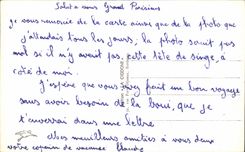 Salut à vous Grand Parisiens
je vous remercie de la carte ainsi que de la photo que
j'attendais tous les jours, la photo serait pas
mal si il n'y avait pas cette tête de singe, à
côté de moi.
j'espère que vous avez fait un bon voyage
sans avoir besoin de la , que je
t'enverrai dans une lettre.
Mes meilleurs amitiés à vous deux
votre copain de vacance Claude